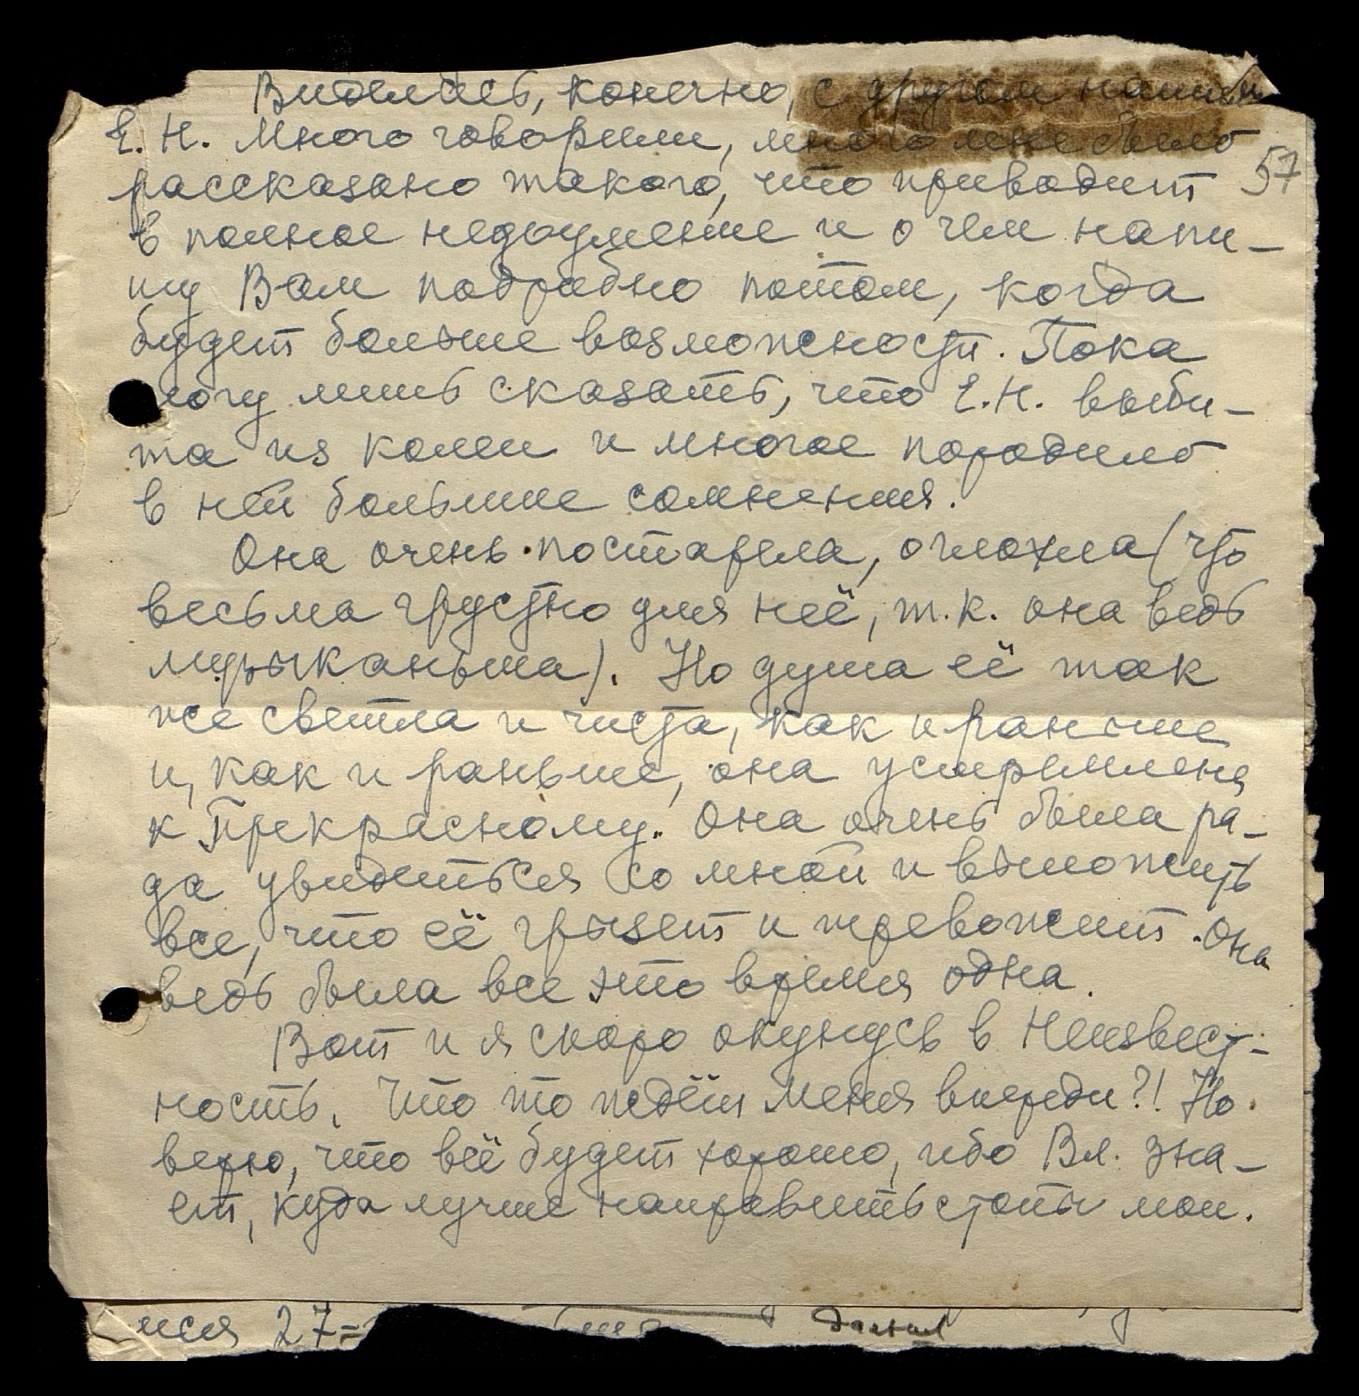 Виделась, конечно, с другом нашим
Е. Н. Много говорили, много мне было
рассказано такого, что приводит
57
в полное недоумение и о чем напи-
шу Вам подробно потом, когда
будет больше возможности. Пока
могу лишь сказать, что Е.Н. выби-
та из колеи и многое породило
в ней большие сомнения.
Она очень постарела, оглохла (что
весьма грустно для неё, т.к. она ведь
музыкантша). Но душа её так
же светла и чиста, как и раньше
и, как и раньше, она устремлена
к Прекрасному. Она очень была ра-
да увидеться со мной и выложить
все, что её грызет и тревожит. Она
ведь была все это время одна.
Вот и я скоро окунусь в Неизвест-
ность. Что то ждёт меня впереди?! Но
верю, что всё будет хорошо, ибо Вл. зна-
ет, куда лучше направить стопы мои.
27=